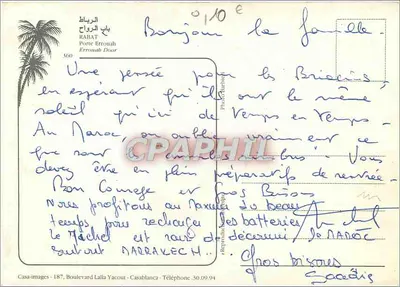 الرباط
باب الرواح
RABAT
Porte Errouah
Errouah Door
300
0,10 €
Bonjour la famille
Une pensée pour les
en espérant qu'ils ont le même
soleil qu'ici de temps en temps -
Au Maroc on oublie vraiment ce
que sont - Vous
devez être en plein préparatifs de rentrée -
Bon Courage et nos Bisous
Nous profitons au maximum du beau
temps pour recharger les batteries
le Michel est ravi de découvrir le MAROC
surtout MARRAKECH.
Gros bisous
CPARPHIL
Casa-images - 187, Boulevard Lalla Yacout - Casablanca - Téléphone .30.09.94